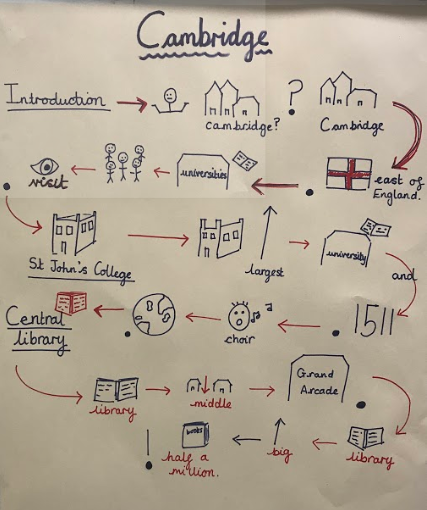 Cambridge
Introduction
cambridge?
?
Cambridge
east of
England.
universities
visit
St John's College
largest
university
and
1511
choir
Central
library
library
middle
Grand
Arcade
library
big
books
half a
million.
!